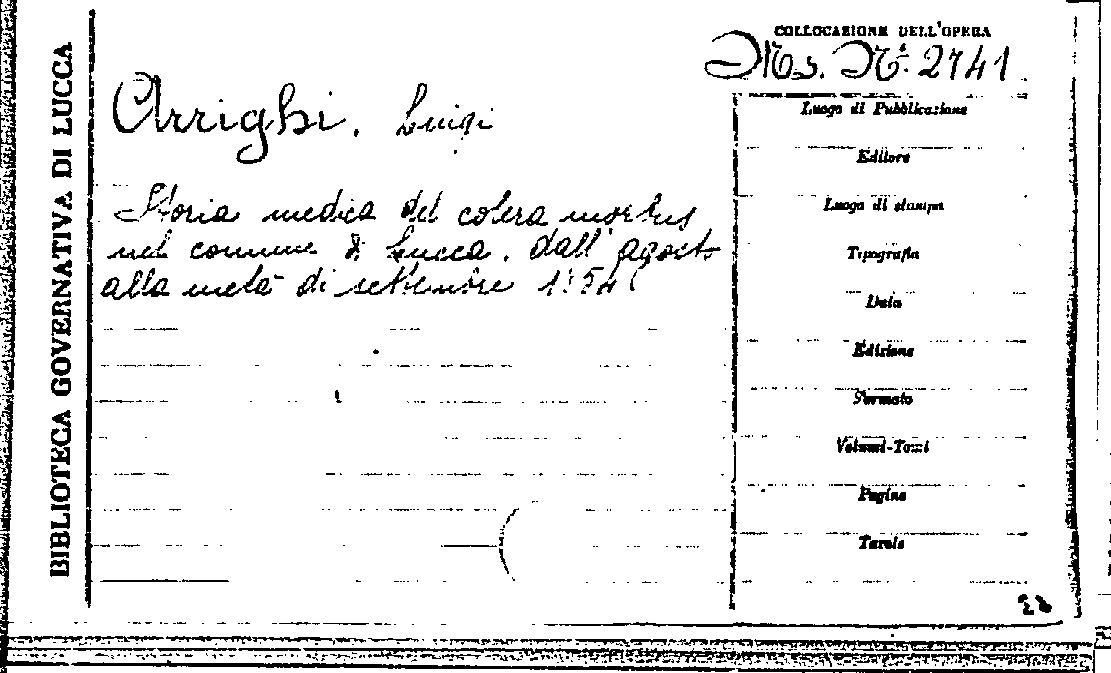 BIBLIOTECA GOVERNATIVA DI LUCCA
COLLOCAZIONE DELL'OPERA
Ms. N.º 2741
Arrighi, Luigi
Storia medica del colera morbus
nel comune di Lucca, dall'agosto
alla metà di settembre 1854
Luogo di Pubblicazione
Editore
Luogo di stampa
Tipografia
Data
Edizione
Formato
Volumi-Tomi
Pagine
Tavole